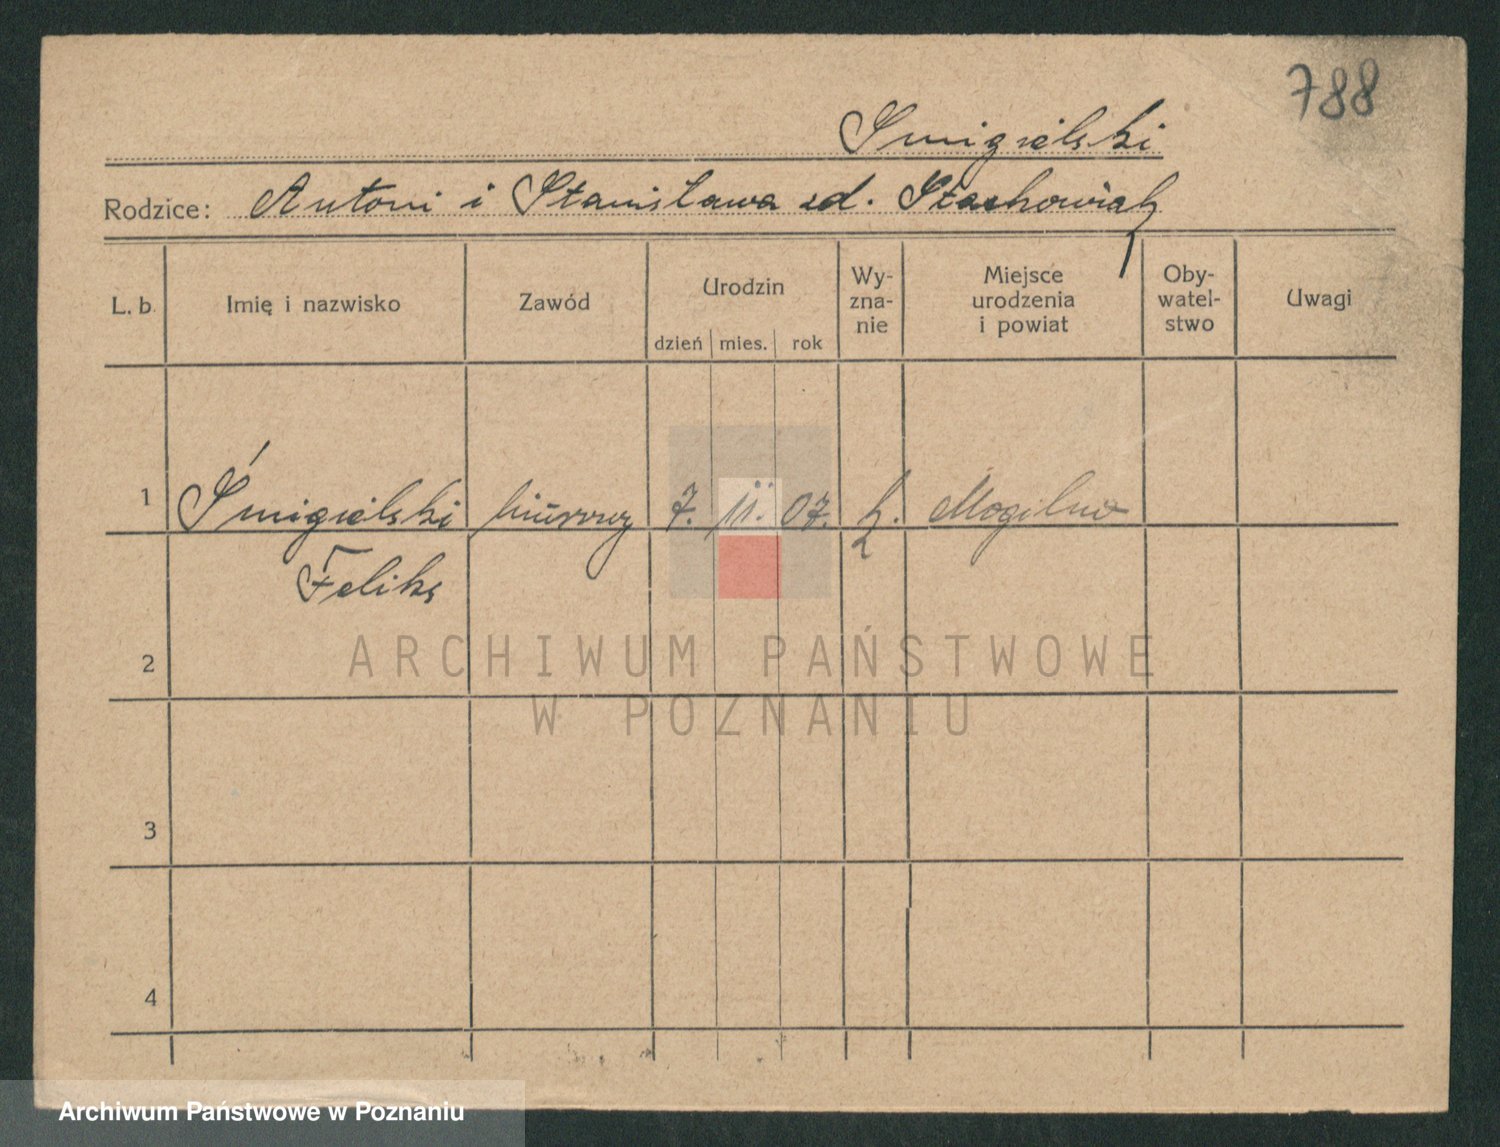 788
Smigielski
Rodzice: Antoni i Stanisława zd. Stachowiak
L. b. Imię i nazwisko Zawód Urodzin dzień mies. rok Wy-zna-nie Miejsce urodzenia i powiat Oby-watel-stwo Uwagi
1 Śmigielski biurowy 7. 11. 07. k. Mogilno
Feliks
2
3
4
ARCHIWUM PAŃSTWOWE
W POZNANIU
Archiwum Państwowe w Poznaniu